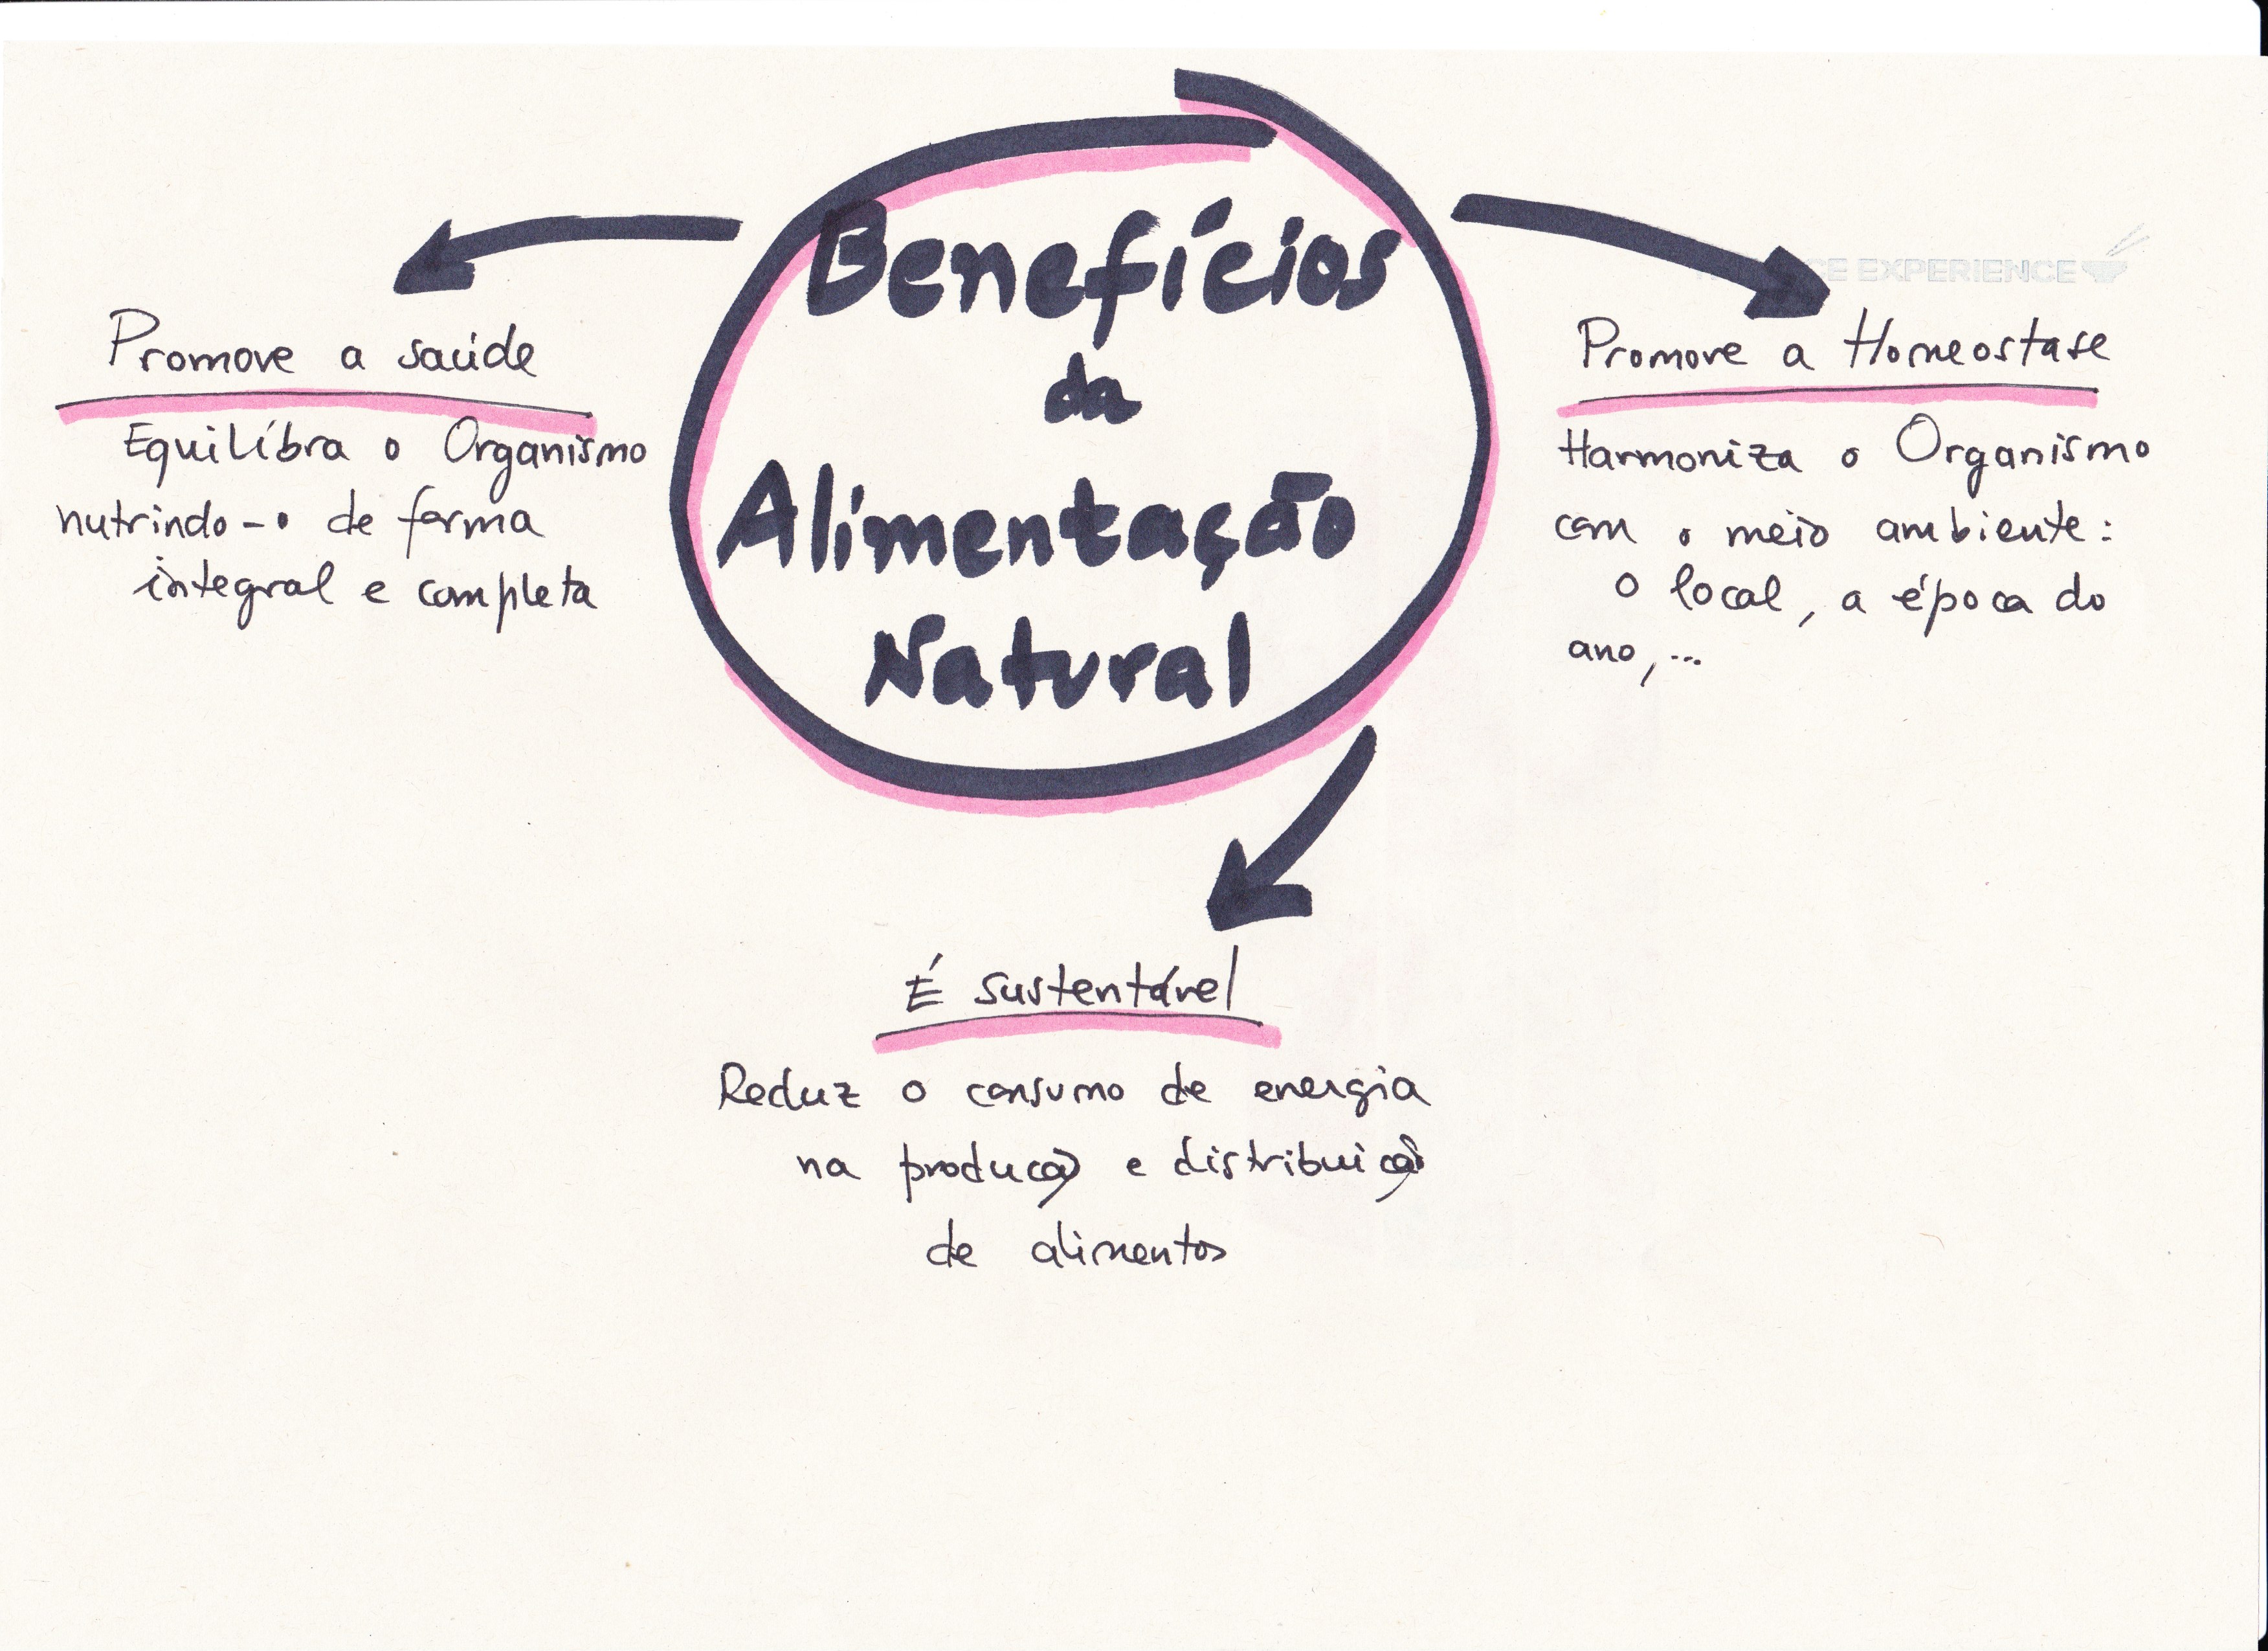 Benefícios
da
Alimentação
Natural
Promove a saúde
Equilíbra o Organismo
nutrindo-o de forma
integral e completa
EXPERIENCE
Promove a Homeostase
Harmoniza o Organismo
com o meio ambiente:
o local, a época do
ano, ...
É sustentável
Reduz o consumo de energia
na produção e distribuição
de alimentos